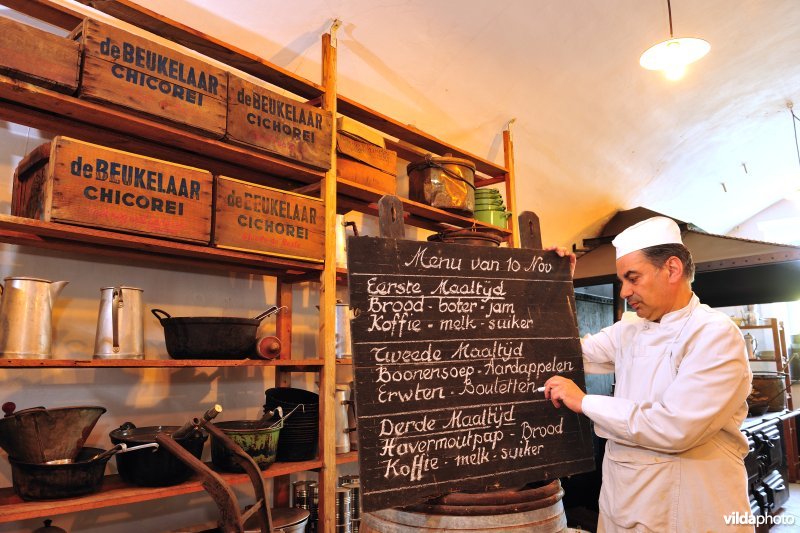 de BEUKELAAR
CHICOREI
de BEUKELAAR
CICHOREI
de BEUKELAAR
CHICOREI
de BEUKELAAR
CICHOREI
Menu van 10 Nov
Eerste Maaltyd
Brood - boter - jam
Koffie - melk - suiker
Tweede Maaltyd
Boonensoep - Aardappelen
Erwten - Bouletten
Derde Maaltyd
Havermoutpap - Brood
Koffie - melk - suiker
vildaphoto